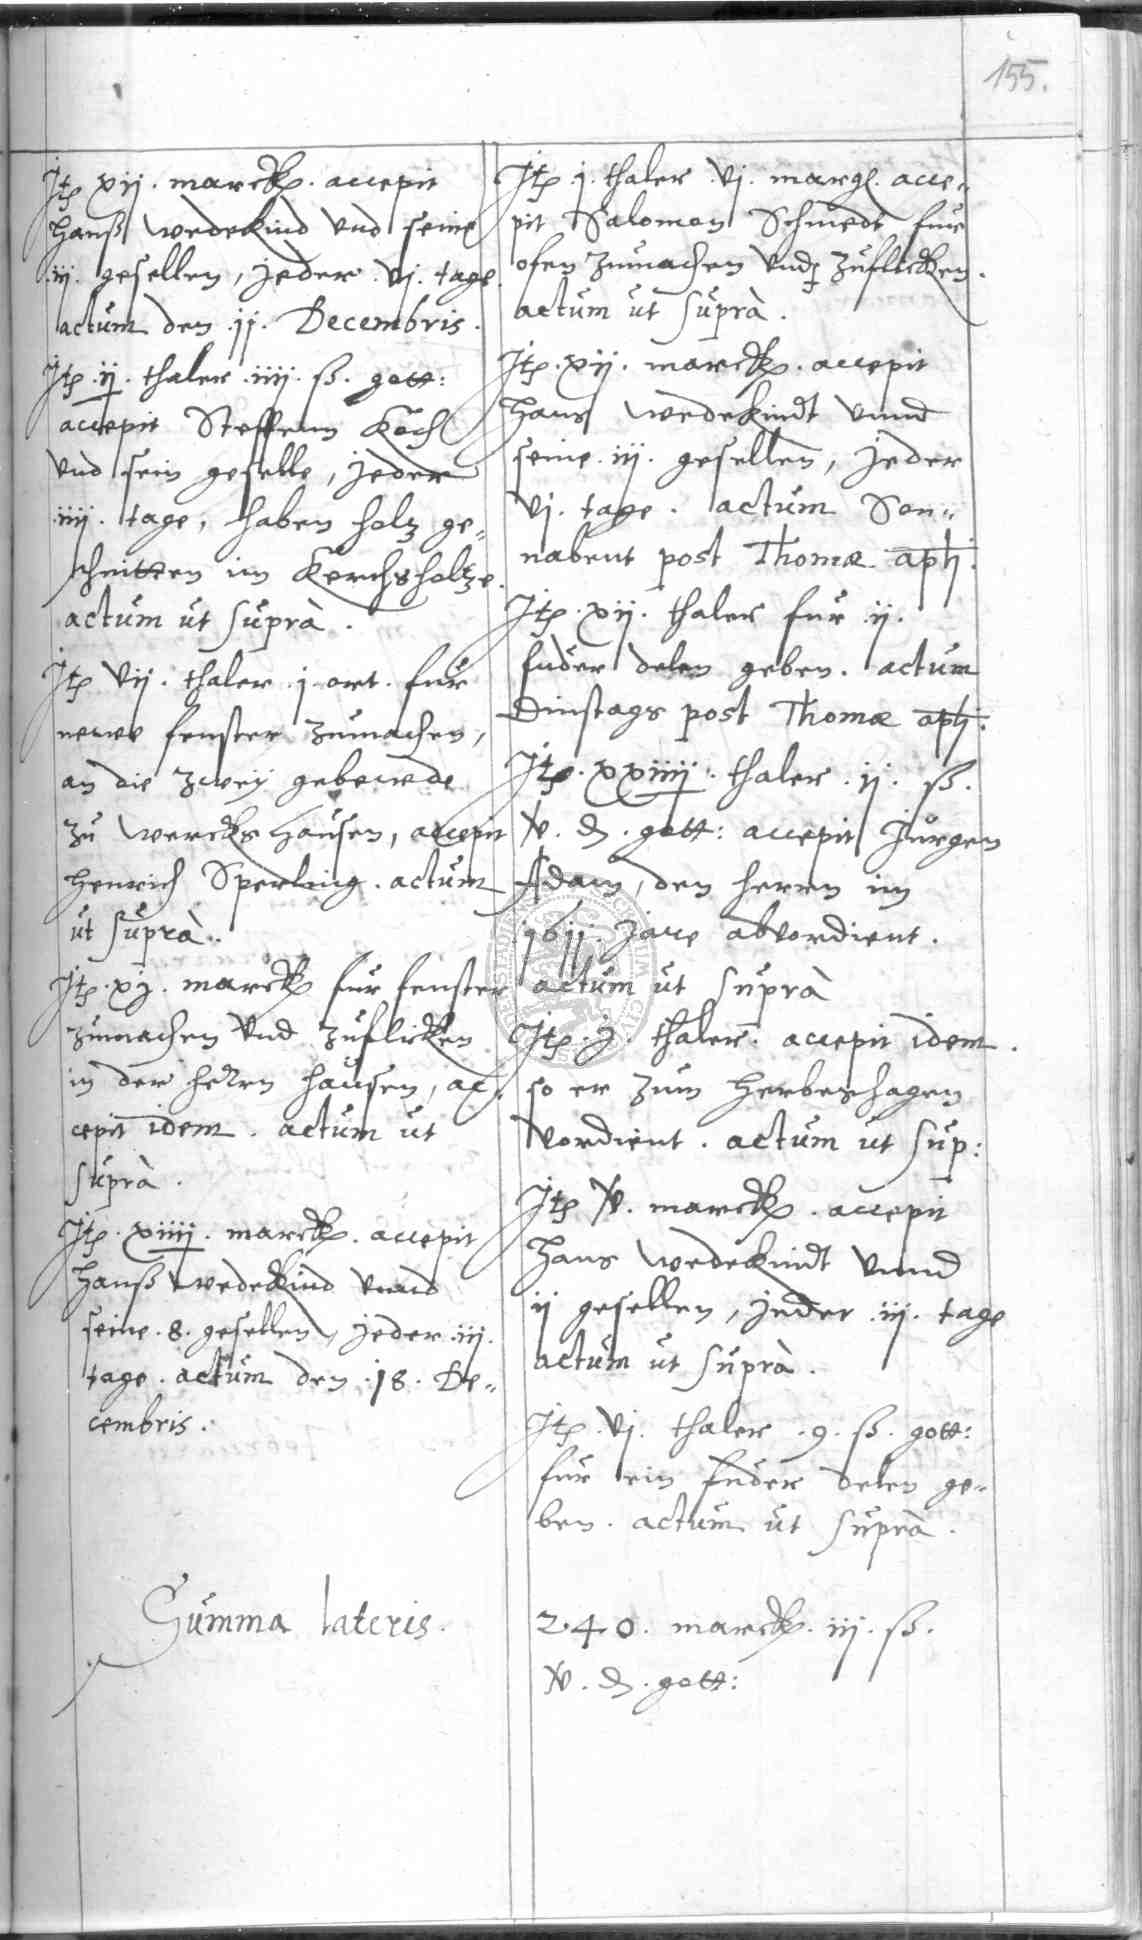 155.
Jtē xij. marck. accepit
Hanß Wedekind vnd seine
.iij. gesellen, jeder .vj. tage.
actum den .11. Decembris.
Jtē .ij. thaler .iiij. ß. gott:
accepit Steffenn Koch
vnd sein geselle, jeder
.iiij. tage, haben holtz ge-
schnitten im Kerchsholtze.
actum ut suprà.
Jtē vij. thaler .j. ort. fur
newe fenster zumachen,
an die zweÿ gebewde
zu Wercks hausen, accepit
Henrich Sperling. actum
ut suprà.
Jtē .xj. marck fur fenster
zumachen vnd zuflicken
in der herrn hausen, ac-
cepit idem. actum ut
suprà.
Jtē .xiiij. marck. accepit
Hanß Wedekind vnnd
seine .8. gesellen, jeder .iij.
tage. actum den .18. De-
cembris.
Jtē .j. thaler .vj. marck. acce-
pit Salomon Schmedt fur
ofen zumachen vnd zuflicken.
actum ut suprà.
Jtē .xij. marck. accepit
Hans Wedekindt vnnd
seine .iij. gesellen, jeder
vj. tage. actum Son-
nabent post Thomæ apli.
Jtē .xij. thaler fur .ij.
fuder delen geben. actum
Dinstags post Thomæ apli.
Jtē .xxiiij. thaler .ij. ß.
v. d. gott: accepit Jurgen
Adam, den herrn im
1611. Jare abvordient.
actum ut suprà
Jtē .j. thaler. accepit idem.
so er zum Herbershagen
vordient. actum ut sup:
Jtē v. marck. accepit
Hans Wedekindt vnnd
ij gesellen, jeder .iij. tage
actum ut suprà.
Jtē .vj. thaler .9. ß. gott:
fur ein fuder delen ge-
ben. actum ut suprà.
Summa lateris.
240. marck. iij. ß.
v. d. gott: